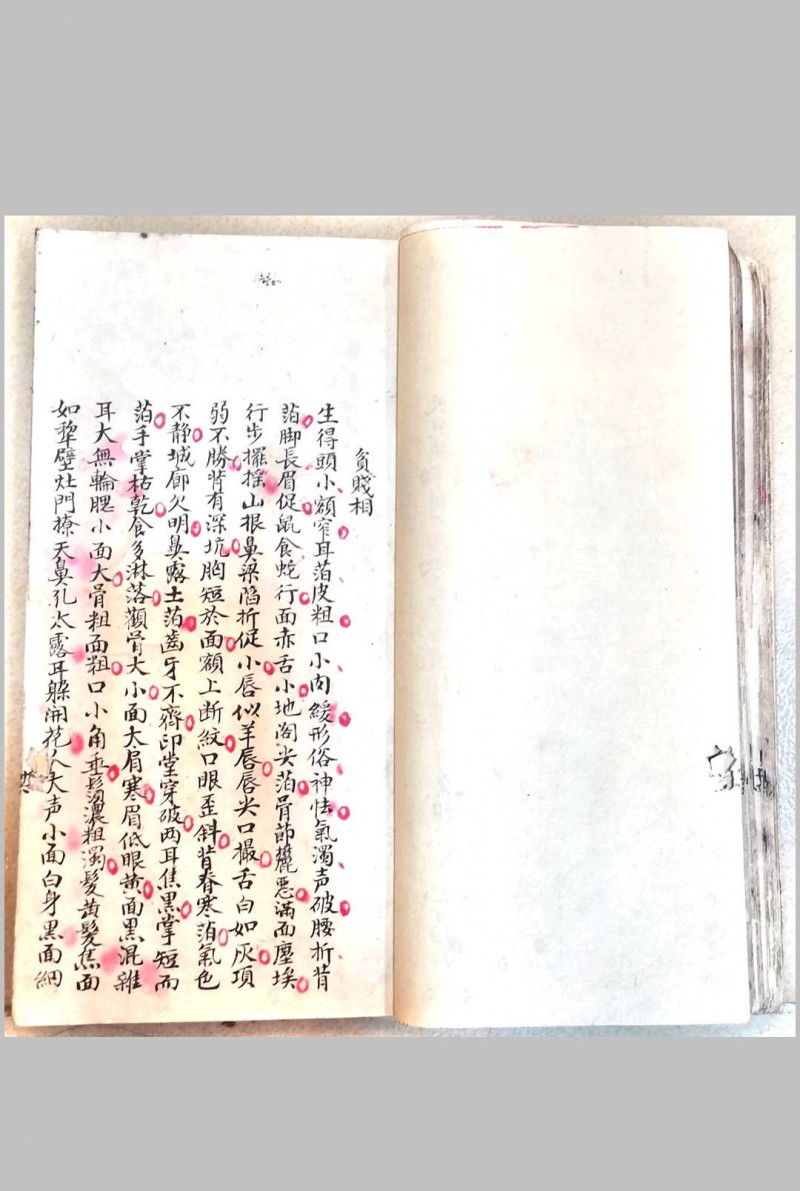 貧賤相
生得頭小額窄耳萡皮粗口小肉緩形俗神怯氣濁声破腰折背
萡脚長眉促鼠食蛇行面赤舌小地阁尖萡骨節麄惡滿面塵埃
行步擺搖山根鼻梁陷折促小唇似羊唇唇尖口撮舌白如灰項
弱不勝背有深坑胸短於面額上断紋口眼歪斜背脊寒萡氣色
不静城廊欠明鼻露土萡齒牙不齊印堂穿破两耳焦黑掌短而
萡手掌枯乾食多淋落顴骨大小面大眉寒眉低眼黄面黑混雜
耳大無輪腮小面大骨粗面粗口小角垂鬚濃粗濁髮黄髮焦面
如犂壁灶門撩天鼻孔太露耳躲開花人大声小面白身黑面細